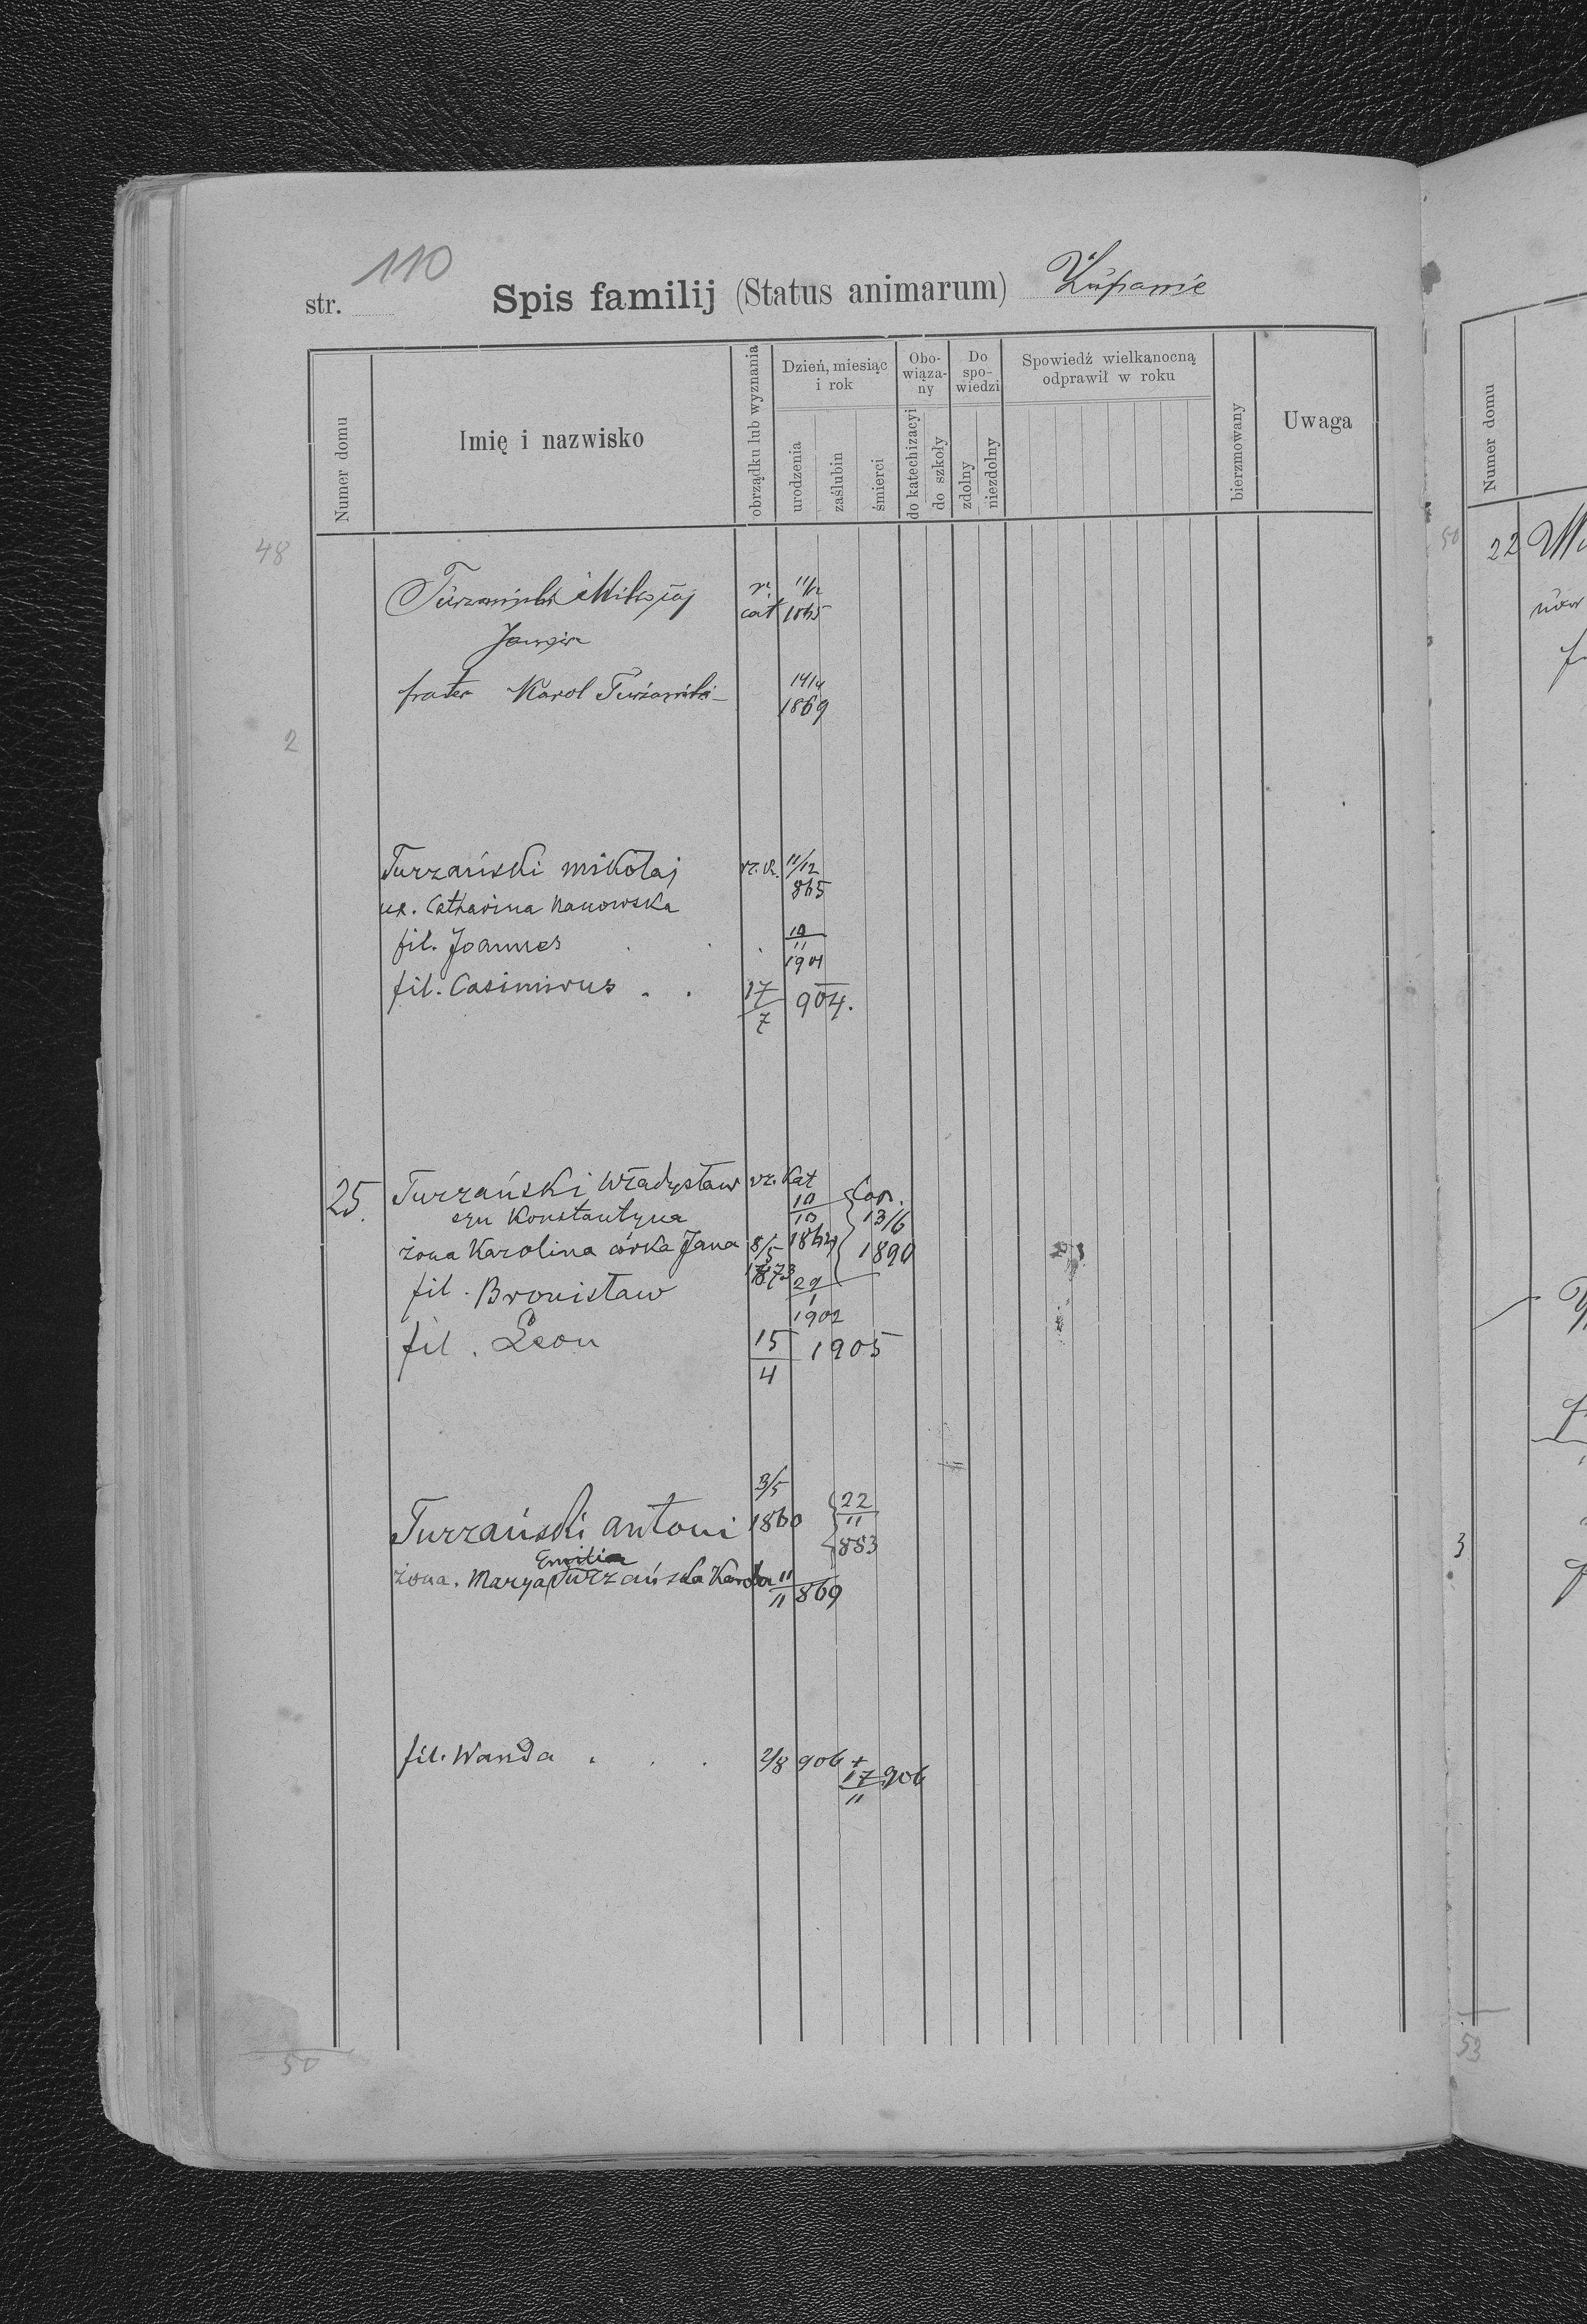 110
str. Spis familij (Status animarum) Żupanie
Numer domu
Imię i nazwisko
obrządku lub wyznania
Dzień, miesiąc i rok
urodzenia
zaślubin
śmierci
Obo-wiąza-ny
do katechizacyi
do szkoły
Do spo-wiedzi
zdolny
niezdolny
Spowiedź wielkanocną odprawił w roku
bierzmowany
Uwaga
Numer domu
48
Turzański Mikołaj r. 11/12
cat 1865
frater Karol Turzański 14/4
1869
2
Turzański Mikołaj rz. k. 11/12
865
ux. Catharina Nanowska
fil. Joannes . . . 10/11
1901
fil. Casimirus . . 17/7 904.
25. Turzański Władysław rz. Kat
syn Konstantyna 10/10 1864 Cop. 13/6 1890
żona Karolina córka Jana 8/5 1873
fil. Bronisław 29/1
1902
fil. Leon 15/4 1905
3/5
Turzański Antoni 1860 22/11 883
Emilia
żona. Marya Turzańska Karola 11/11 869
fil. Wanda . . . 2/8 906 + 17/11 906
50
50
22
3
53